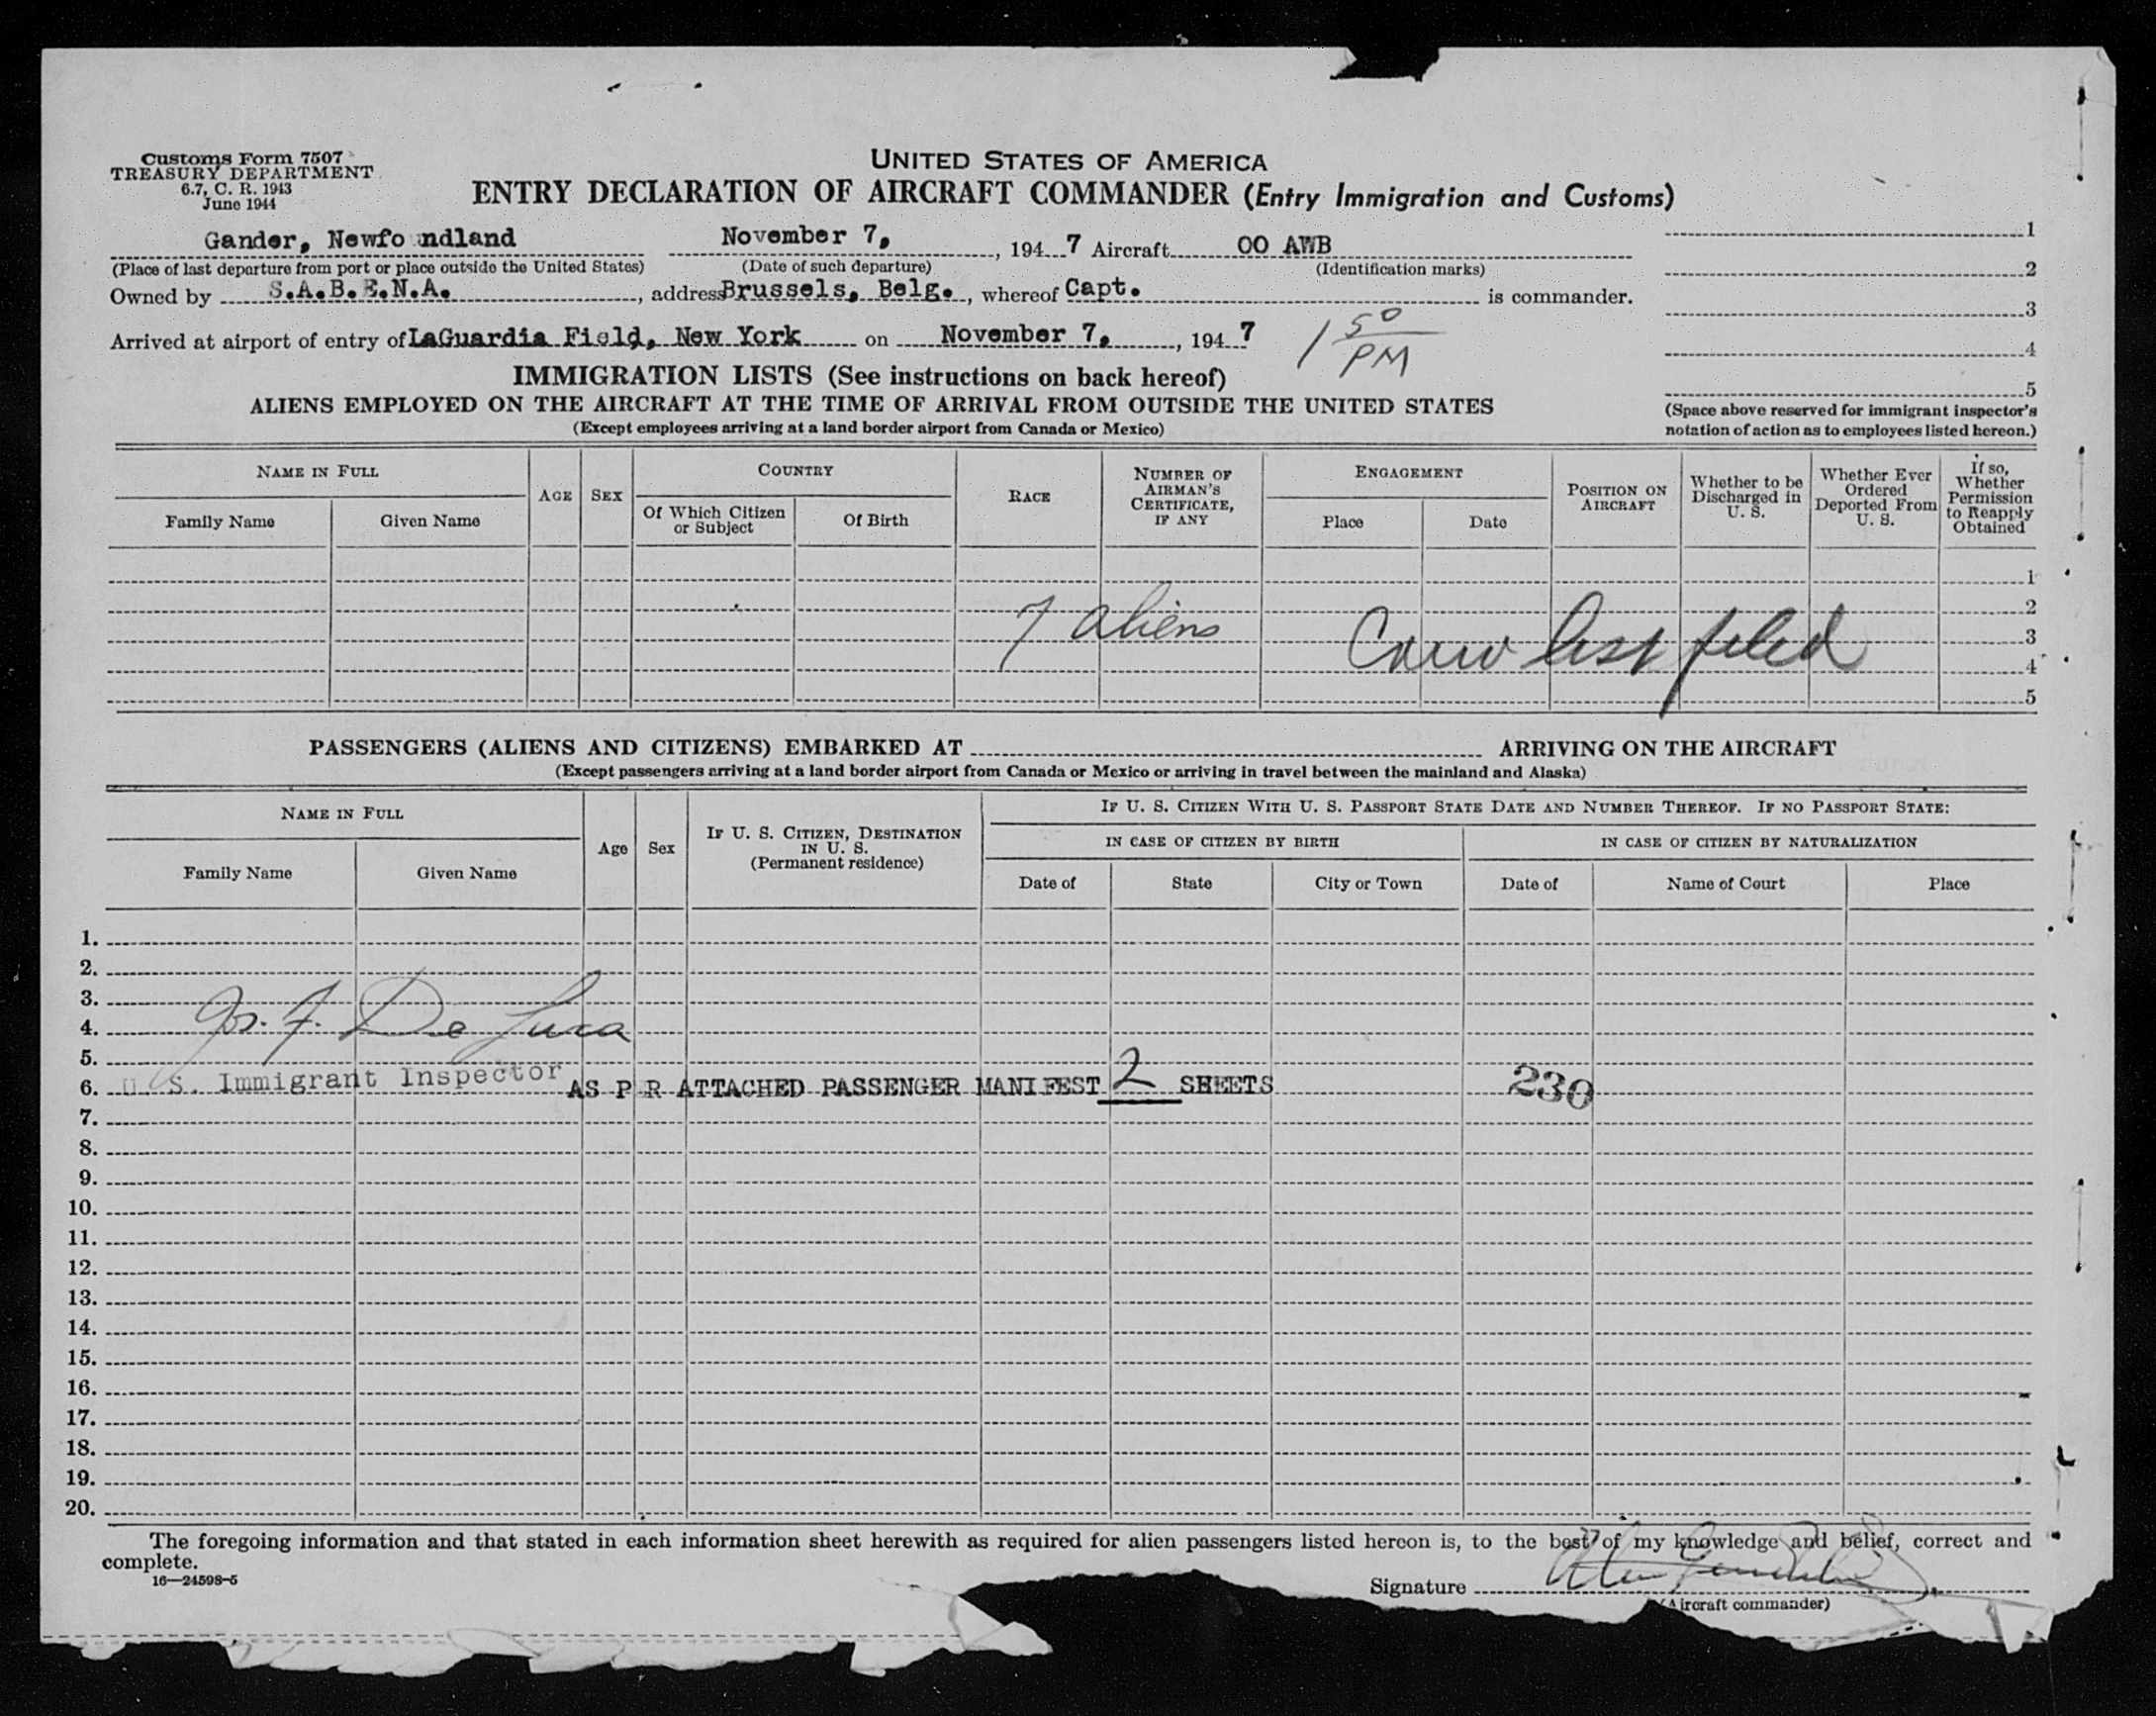 Customs Form 7507
TREASURY DEPARTMENT
6.7, C. R. 1943
June 1944
UNITED STATES OF AMERICA
ENTRY DECLARATION OF AIRCRAFT COMMANDER (Entry Immigration and Customs)
Gander, Newfo ndland November 7, , 194 7 Aircraft OO AWB
(Place of last departure from port or place outside the United States) (Date of such departure) (Identification marks)
Owned by S.A.B.E.N.A. , address Brussels, Belg. , whereof Capt. is commander.
Arrived at airport of entry of LaGuardia Field, New York on November 7, , 194 7 1 50 PM
1
2
3
4
5
(Space above reserved for immigrant inspector's
notation of action as to employees listed hereon.)
IMMIGRATION LISTS (See instructions on back hereof)
ALIENS EMPLOYED ON THE AIRCRAFT AT THE TIME OF ARRIVAL FROM OUTSIDE THE UNITED STATES
(Except employees arriving at a land border airport from Canada or Mexico)
NAME IN FULL
Family Name
Given Name
AGE
SEX
COUNTRY
Of Which Citizen
or Subject
Of Birth
RACE
NUMBER OF
AIRMAN'S
CERTIFICATE,
IF ANY
ENGAGEMENT
Place
Date
POSITION ON
AIRCRAFT
Whether to be
Discharged in
U. S.
Whether Ever
Ordered
Deported From
U. S.
If so,
Whether
Permission
to Reapply
Obtained
1
2
7 aliens Crew list filed 3
4
5
PASSENGERS (ALIENS AND CITIZENS) EMBARKED AT ARRIVING ON THE AIRCRAFT
(Except passengers arriving at a land border airport from Canada or Mexico or arriving in travel between the mainland and Alaska)
NAME IN FULL
Family Name
Given Name
Age
Sex
IF U. S. CITIZEN, DESTINATION
IN U. S.
(Permanent residence)
IF U. S. CITIZEN WITH U. S. PASSPORT STATE DATE AND NUMBER THEREOF. IF NO PASSPORT STATE:
IN CASE OF CITIZEN BY BIRTH
IN CASE OF CITIZEN BY NATURALIZATION
Date of
State
City or Town
Date of
Name of Court
Place
1.
2.
3.
4. Jos. F. De Luca
5.
6. U S. Immigrant Inspector AS P R ATTACHED PASSENGER MANIFEST 2 SHEETS 230
7.
8.
9.
10.
11.
12.
13.
14.
15.
16.
17.
18.
19.
20.
The foregoing information and that stated in each information sheet herewith as required for alien passengers listed hereon is, to the best of my knowledge and belief, correct and
complete.
16—24598-5
Signature
(Aircraft commander)